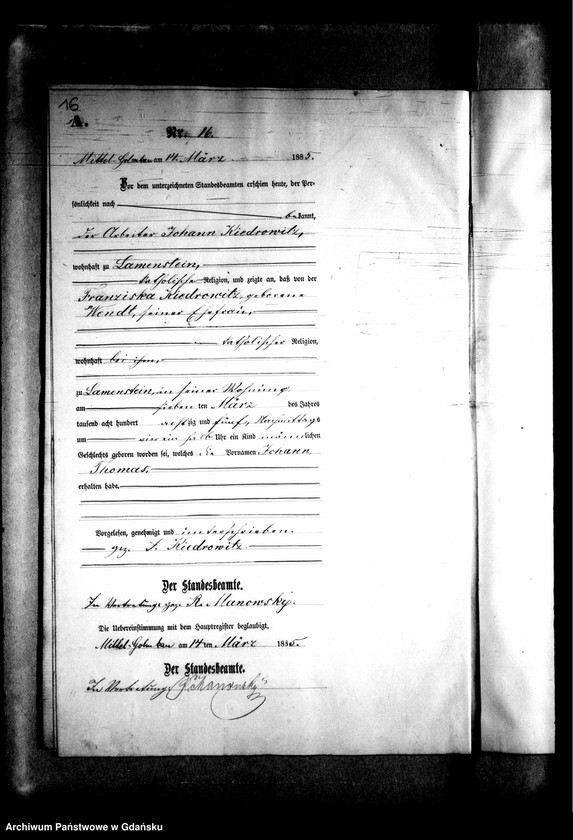 16
A.
Nr. 16.
Mittel-Golmkau am 14. März 1885.
Vor dem unterzeichneten Standesbeamten erschien heute, der Per-
sönlichkeit nach
bekannt,
der Arbeiter Johann Kiedrowitz,
wohnhaft zu Lamenstein,
katholischer Religion, und zeigte an, daß von der
Franziska Kiedrowitz, geborene
Wendt, seiner Ehefrau,
katholischer Religion,
wohnhaft bei ihm,
zu Lamenstein, in seiner Wohnung
am sieben ten März des Jahres
tausend acht hundert achtzig und fünf, Nachmittags
um ein halb Uhr ein Kind männlichen
Geschlechts geboren worden sei, welches die Vornamen Johann
Thomas,
erhalten habe.
Vorgelesen, genehmigt und unterschrieben.
gez. J. Kiedrowitz
Der Standesbeamte.
In Vertretung gez. Manowsky.
Die Uebereinstimmung mit dem Hauptregister beglaubigt.
Mittel-Golmkau am 14 ten März 1885.
Der Standesbeamte.
In Vertretung Manowsky
Archiwum Państwowe w Gdańsku